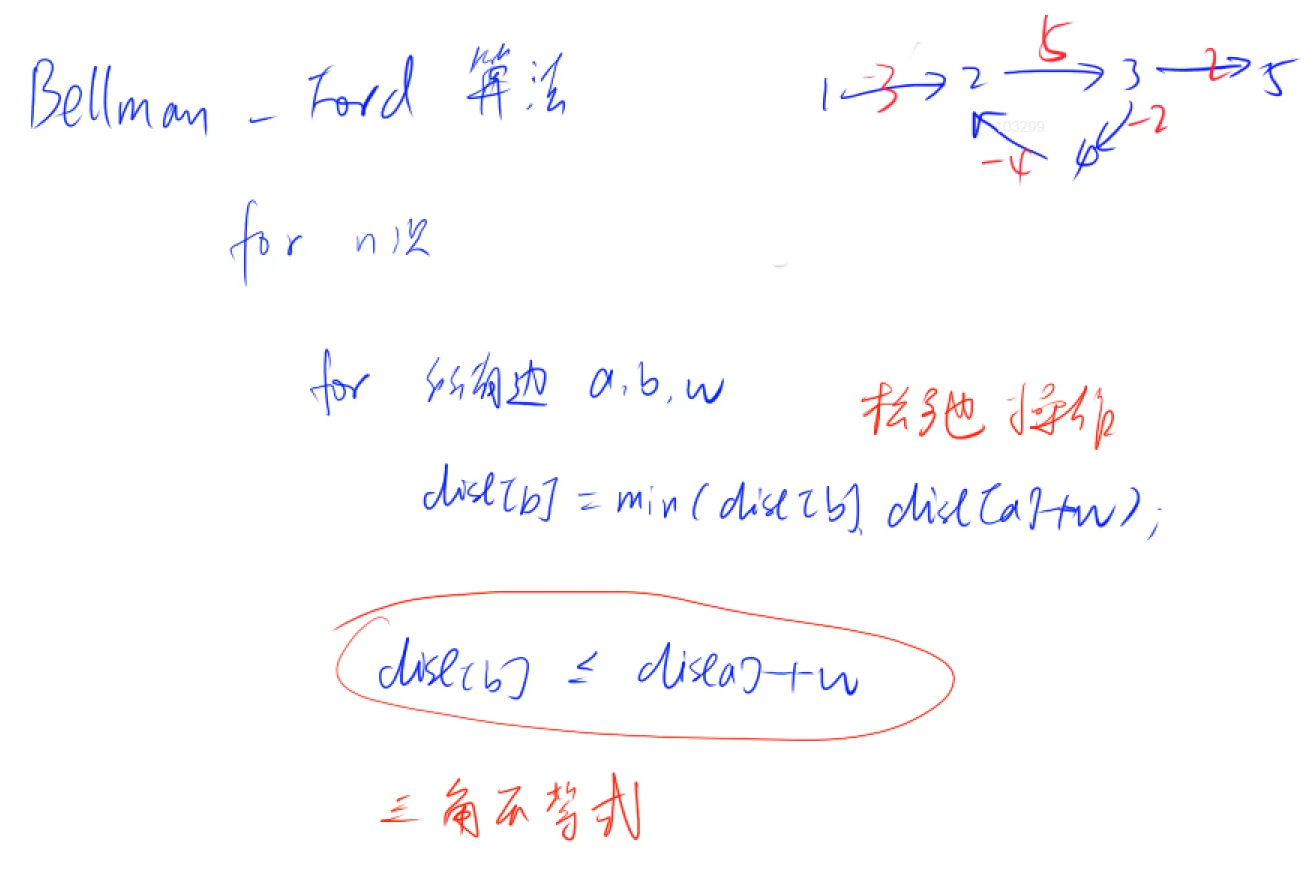 Bellman - Ford 算法
1 3 2 5 3 2 5
-4 4 -2
103299
for n次
for 所有边 a,b,w
松弛操作
dist[b] = min(dist[b], dist[a]+w);
dist[b] ≤ dist[a]+w
三角不等式